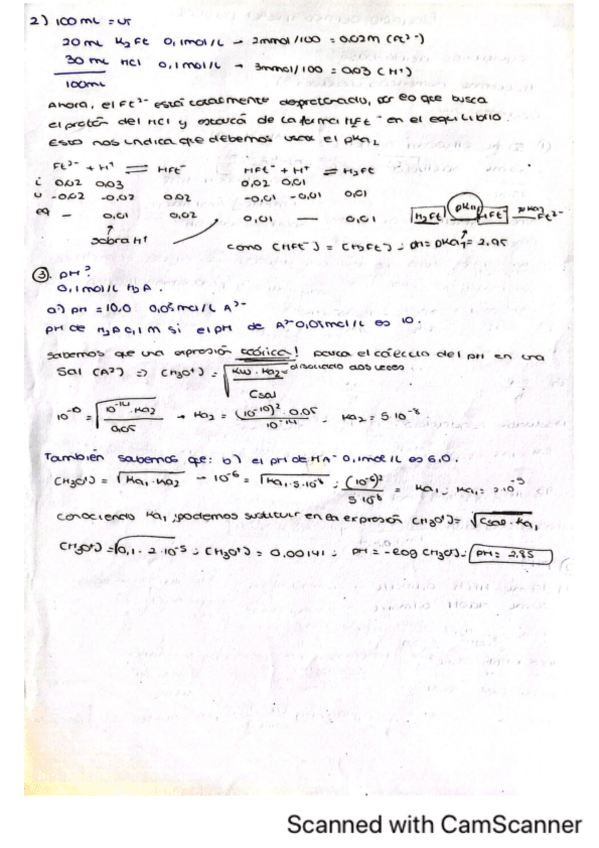 2) 100 mL = VT
20 mL K2Ft 0,1mol/L → 2mmol/100 = 0.02M (Ft²⁻)
30 mL HCl 0,1mol/L → 3mmol/100 = 0.03 (H⁺)
100mL
Ahora, el Ft²⁻ está desprotonado, por lo que busca
el protón del HCl y estará de la forma HFt⁻ en el equilibrio
Esto nos indica que debemos usar el pKa2
Ft²⁻ + H⁺ ⇌ HFt⁻ HFt⁻ + H⁺ ⇌ H2Ft
i 0,02 0,03 0,02 0,01
-0,02 -0,02 0,02 -0,01 -0,01 0,01
eq — 0,01 0,02 0,01 — 0,01
H2Ft pKa1 HFt⁻ pKa2 Ft²⁻
sobra H⁺
como (HFt⁻) = (H2Ft) ; pH = pKa1 = 2.95
③. pH?
0,1mol/L H2A.
a) pH = 10.0 0,05mol/L A²⁻
pH de H2A 0,1 M si el pH de A²⁻ 0,05mol/L es 10.
Sabemos que una expresión teórica! para el cálculo del pH en una
Sal (A²⁻) ⇒ (H3O⁺) = √(Kw · Ka2 / Csal) disociado dos veces
10⁻¹⁰ = √(10⁻¹⁴ · Ka2 / 0.05) → Ka2 = (10⁻¹⁰)² · 0.05 / 10⁻¹⁴ ; Ka2 = 5·10⁻⁸
También sabemos que: b) el pH de HA⁻ 0,1mol/L es 6,0.
(H3O⁺) = √(Ka1 · Ka2) → 10⁻⁶ = √(Ka1 · 5·10⁻⁸) ; (10⁻⁶)² / 5·10⁻⁸ = Ka1 ; Ka1 = 2·10⁻⁵
conociendo Ka1, podemos sustituir en la expresión (H3O⁺) = √(Csal · Ka1)
(H3O⁺) = √(0,1 · 2·10⁻⁵) ; (H3O⁺) = 0,00141 ; pH = -log (H3O⁺) ; pH = 2.85
Scanned with CamScanner